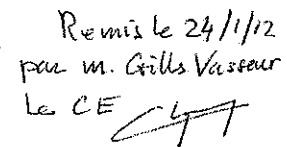 Remis le 24/1/12
par m. Gills Vasseur
Le CE